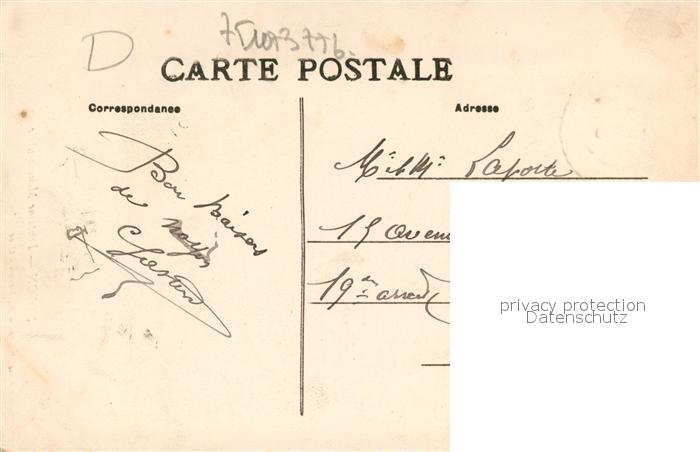 D
CARTE POSTALE
Correspondance
Adresse
Bon baisers
de
Gaston
Mr et Mme Laporte
15 avenu
19em arrond
privacy protection
Datenschutz